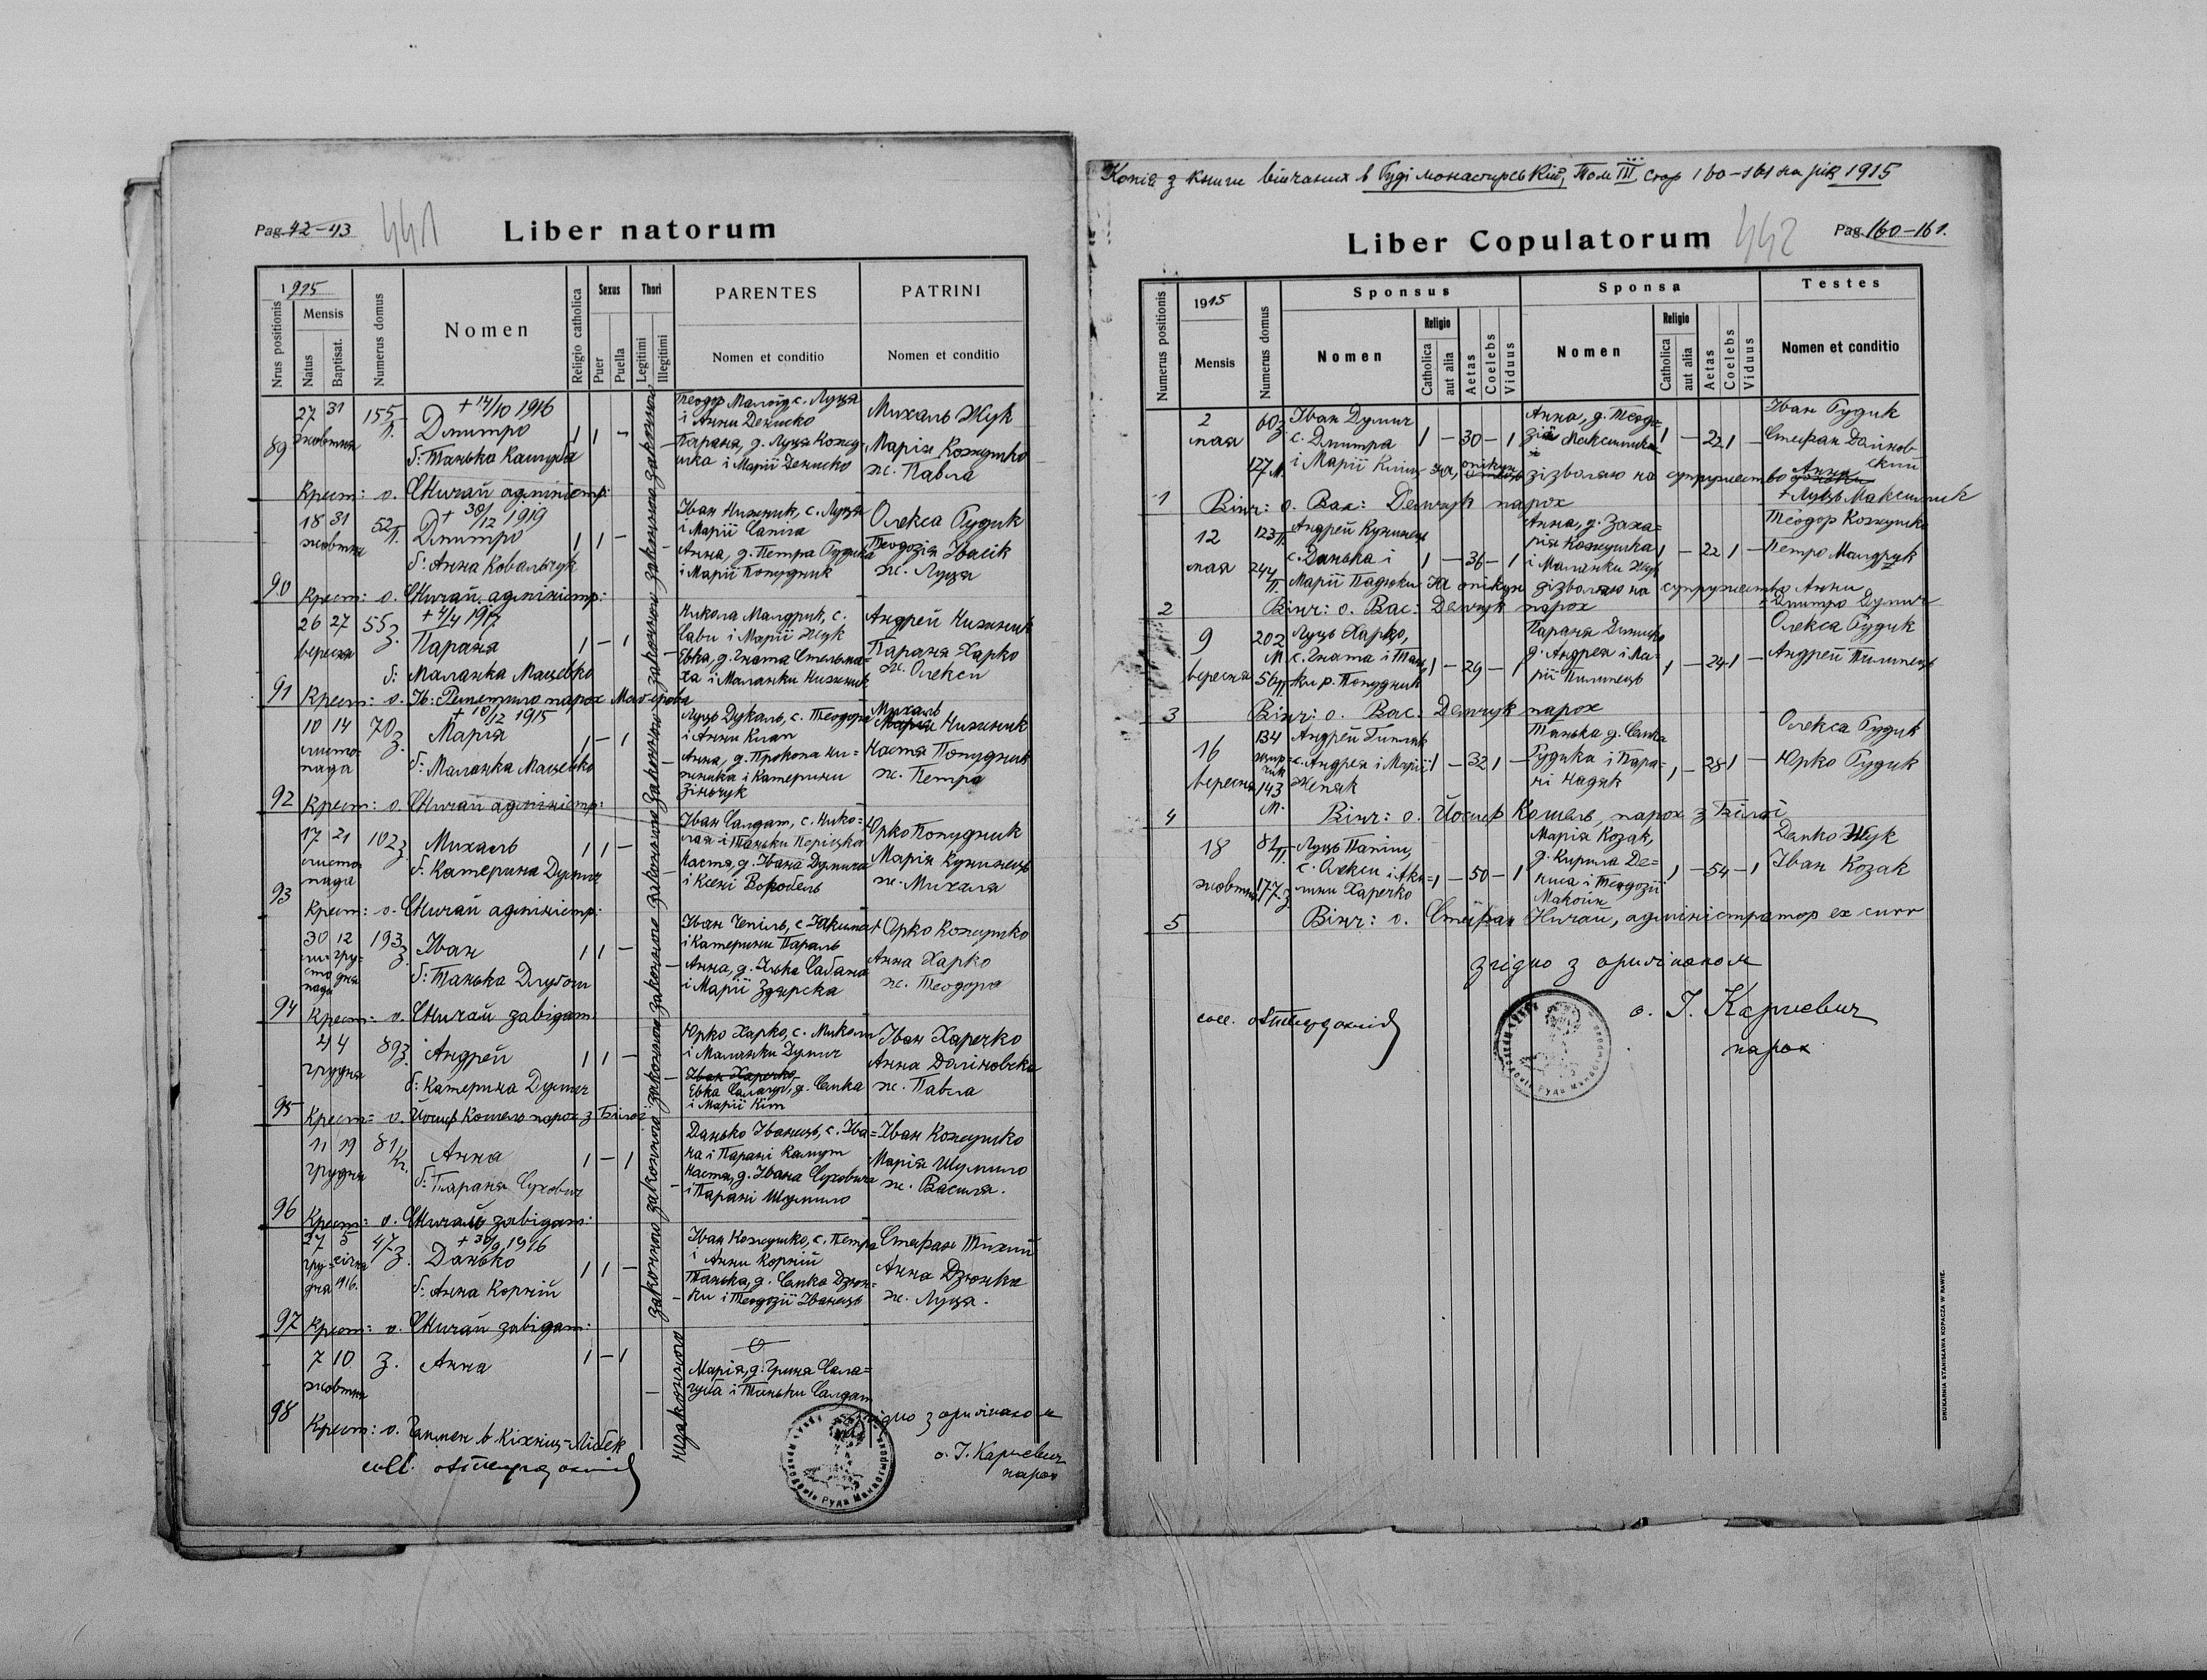 Pag. 42-43
441
Liber natorum
1915
Nrus positionis
Mensis
Natus
Baptisat.
Numerus domus
Nomen
Religio catholica
Sexus
Puer
Puella
Thori
Legitimi
Illegitimi
PARENTES
Nomen et conditio
PATRINI
Nomen et conditio
89
27 31
жовтня
155 П.
+ 14/10 1916
Дмитро
б: Танька
1 1 -
Теодор с. Луця
і Анни Дениско
Параня, д. Луця Кожу-
шка і Марії Дениско
Михаль Жук
Марія Кожушко
ж. Павла
Крест: о. СНичай адміністр:
90
18 31
жовтня
52 П.
+ 30/12 1919
Дмитро
б: Анна Ковальчук
1 1 -
Іван Нижник, с. Луця
і Марії Сапіга
Анна, д. Петра Гудика
і Марії Попудник
Олекса Гудик
Теодозія Івасік
ж. Луця
Крест: о. СНичай адміністр:
91
26 27
вересня
55 З.
+ 4/4 1917
Параня
б: Маланка Мацевко
1 - 1
Никола Малдрик, с.
Сави і Марії Жук
Евка, д. Гната Стельма-
ха і Маланки Нижник
Андрей Нижник
Параня Харко
ж. Олекси
Крест: о. Ів: парох Магерова
92
10 14
листо-
пада
70 З.
+ 10/12 1915
Марія
б: Маланка Мацевко
1 - 1
Луць Дукаль, с. Теодора
і Анни
Анна, д. Прокопа Ни-
жника і Катерини
Зінчук
Михаль
Нижник
Настя Попудник
ж. Петра
Крест: о. СНичай адміністр:
93
17 21
листо-
пада
102 З.
Михаль
б: Катерина Думич
1 1 -
Іван Салдат, с. Нико-
лая і Таньки
Настя, д. Івана Думича
і Ксені Воробель
Юрко Попудник
Марія Кунинець
ж. Михаля
Крест: о. СНичай адміністр:
94
30 12
ли- гру-
сто- дня
пада
193 З.
Іван
б: Танька
1 1 -
Іван Чепіль, с. Якима
і Катерини Параль
Анна, д. Ілька Сабана
і Марії Здирска
Юрко Кожушко
Анна Харко
ж. Теодора
Крест: о. СНичай завідат:
95
2 4
грудня
89 З.
Андрей
б: Катерина Думич
1 1 -
Юрко Харко, с. Миколи
і Маланки Думич
Іван Харечко
Евка д. Сенка
і Марії Кіт
Іван Харечко
Анна Даліновска
ж. Павла
Крест: о. Йосиф Кошель парох з Білої
96
11 19
грудня
81
Анна
б: Параня Сухович
1 - 1
Данько Іванець, с. Іва-
на і Парані
Настя, д. Івана Суховича
і Парані Шумило
Іван Кожушко
Марія Шумило
ж. Василя.
Крест: о. СНичай завідат:
97
27 5
гру- січня
дня 1916.
47 З.
+ 30/9 1916
Данько
б: Анна Корній
1 1 -
Іван Кожушко, с. Петра
і Анни Корній
Танька, д. Сенка Дзюн-
ки і Теодозії Іванець
Стефан Тихий
Анна Дзюнка
ж. Луця.
Крест: о. СНичай завідат:
98
7 10
жовтня
З.
Анна
1 - 1
Марія, д. Гриня
і Таньки Салдат
Крест: о.
законно законно законно законно законно законно законно законно законно
незаконно
згідно з оригіналом
о. І. Карпевич
парох
coll.
Копія з книги вінчаних в Руді монастирській, Том III, стор 160-161 на рік 1915
Liber Copulatorum
442
Pag. 160-161.
Numerus positionis
1915
Mensis
Numerus domus
Sponsus
Nomen
Religio
Catholica
aut alia
Aetas
Coelebs
Viduus
Sponsa
Nomen
Religio
Catholica
aut alia
Aetas
Coelebs
Viduus
Testes
Nomen et conditio
1
2
мая
60 З
127 М.
Іван Думич
с. Дмитра
і Марії
1 - 30 - 1
Анна, д. Теодо-
зія Максимика
1 - 22 1 -
Іван Гудик
Стефан Далінов-
ский
опікун зізваляю на супружество Анни
+ Луць Максимик
Вінч: о. Вас: Демчук парох
2
12
мая
123 П.
244 П.
Андрей Кунинець
с. Данька і
Марії Падюки
1 - 36 - 1
Анна, д. Заха-
рія Кожушка
і Маланки Жук
1 - 22 1 -
Теодор Кожушко
Петро Малдрик
Як опікун зізваляю на супружество Анни
+ Дмитро Думич
Вінч: о. Вас: Демчук парох
3
9
вересня
202 М.
56 П.
Луць Харко,
с. Гната і Тань-
ки р. Попудник
1 - 29 - 1
Параня Дениско
д. Андрея і Ма-
рії Пилипець
1 - 24 1 -
Олекса Гудик
Андрей Пилипець
Вінч: о. Вас. Демчук парох
4
16
вересня
134
143 М.
Андрей
с. Андрея і Марії
1 - 32 1 -
Танька д. Сенка
Гудика і Пара-
ні
1 - 28 1 -
Олекса Гудик
Юрко Гудик
Вінч: о. Йосиф Кошель, парох з Білої
5
18
жовтня
81 П.
177 З
Луць Папіш,
с. Олекси і Аки-
лини Харечко
1 - 50 - 1
Марія Козак,
д. Кирила Де-
ниса і Теодозії
1 - 54 - 1
Данко Жук
Іван Козак
Вінч: о. Стефан Ничай, адміністратор ex curr
згідно з оригіналом
coll.
о. І. Карпевич
парох
DRUKARNIA STANISŁAWA KOPACZA W RAWIE.